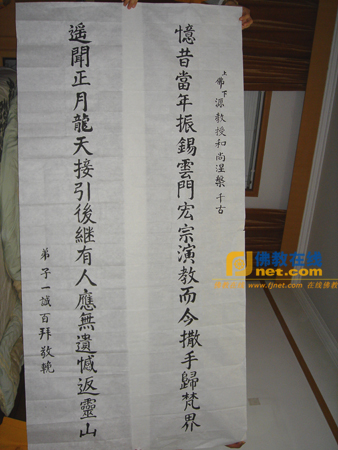 上佛下源教授和尚涅槃千古
憶昔當年振錫雲門宏宗演教而今撒手歸梵界
遥聞正月龍天接引後継有人應無遺憾返靈山
弟子一誠百拜敬輓
佛教在线
net.com
www.fjnet.com 在线佛教